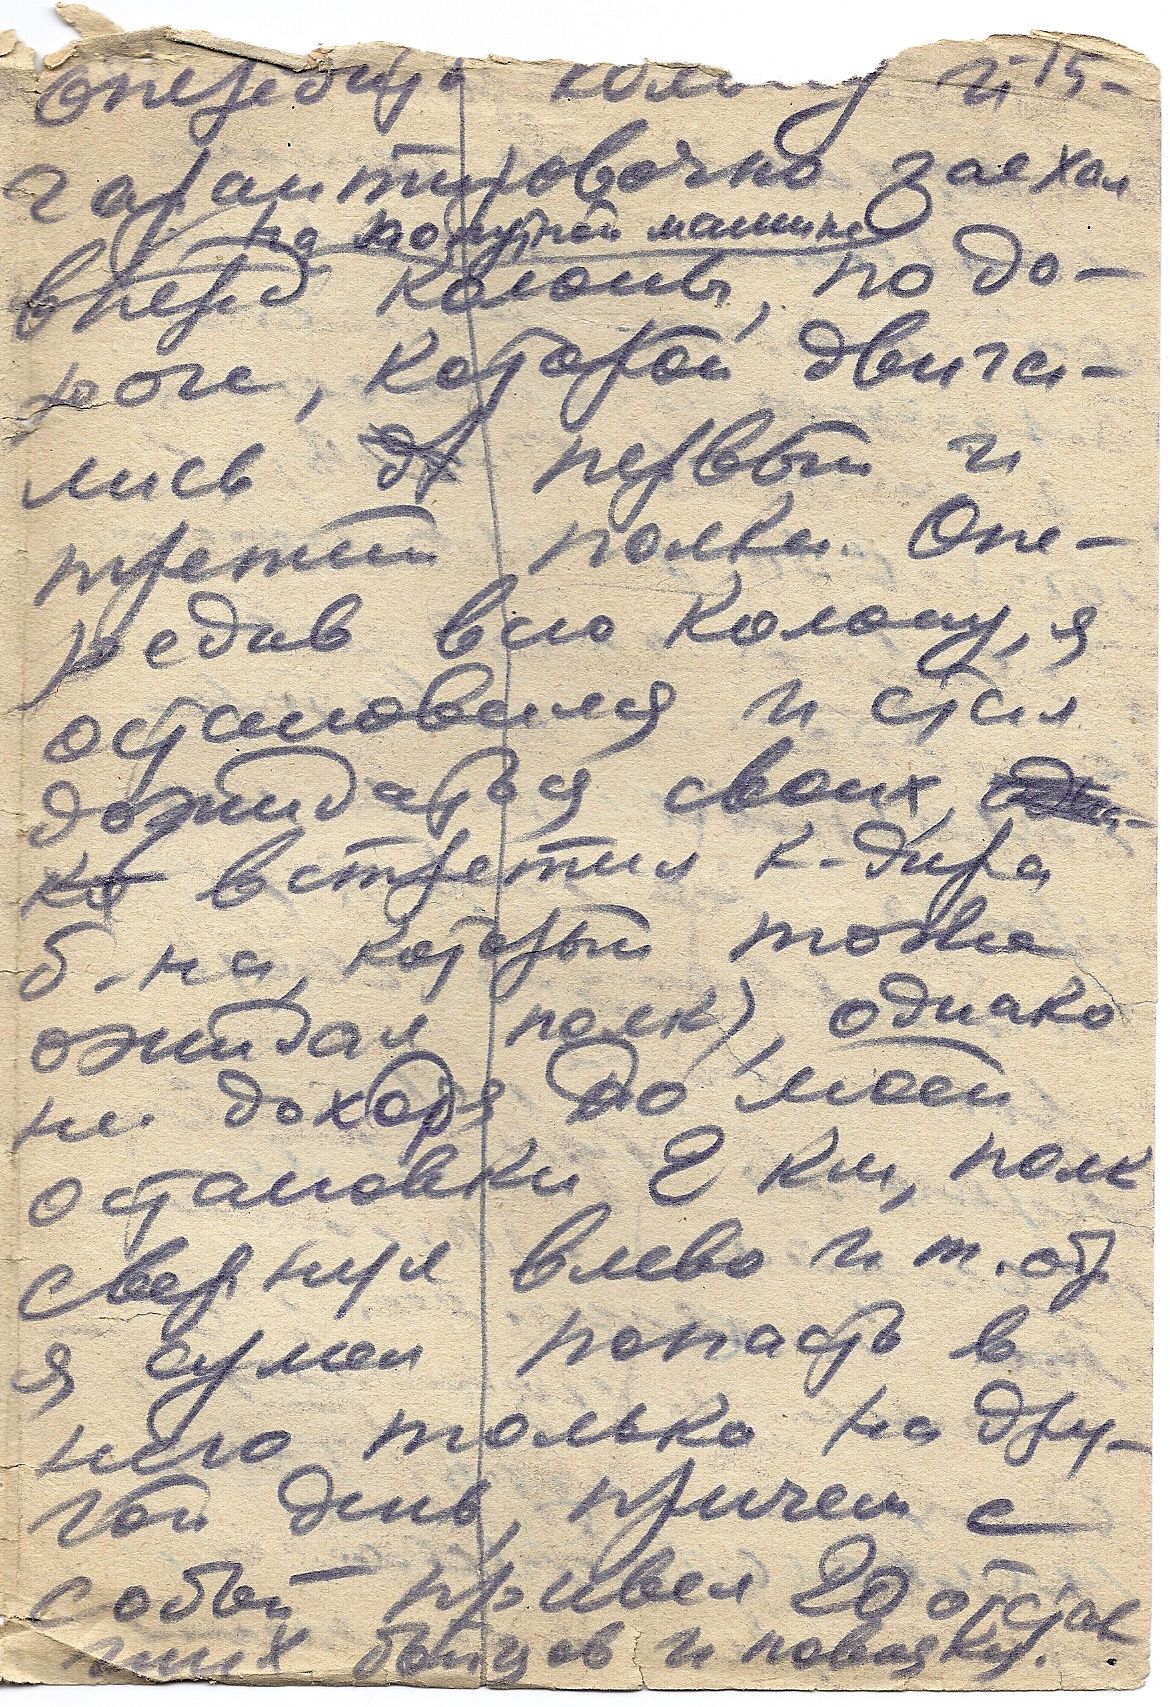 Опередил колону и
гарантировочно заехал
на попутной машине
вперед колоны, по до-
роге, которой двига-
лись первый и
третий полки. Опе-
редив всю колону, я
остановился и стал
дожидаться своих,
встретил к-дира
б-на, который тоже
ожидал полк), однако
не доходя до моей
остановки 2 км, полк
свернул влево и т. обр.
я сумел попасть в
него только на дру-
гой день, причем с
собой привел 20 отстав
ших бойцов и повозку.